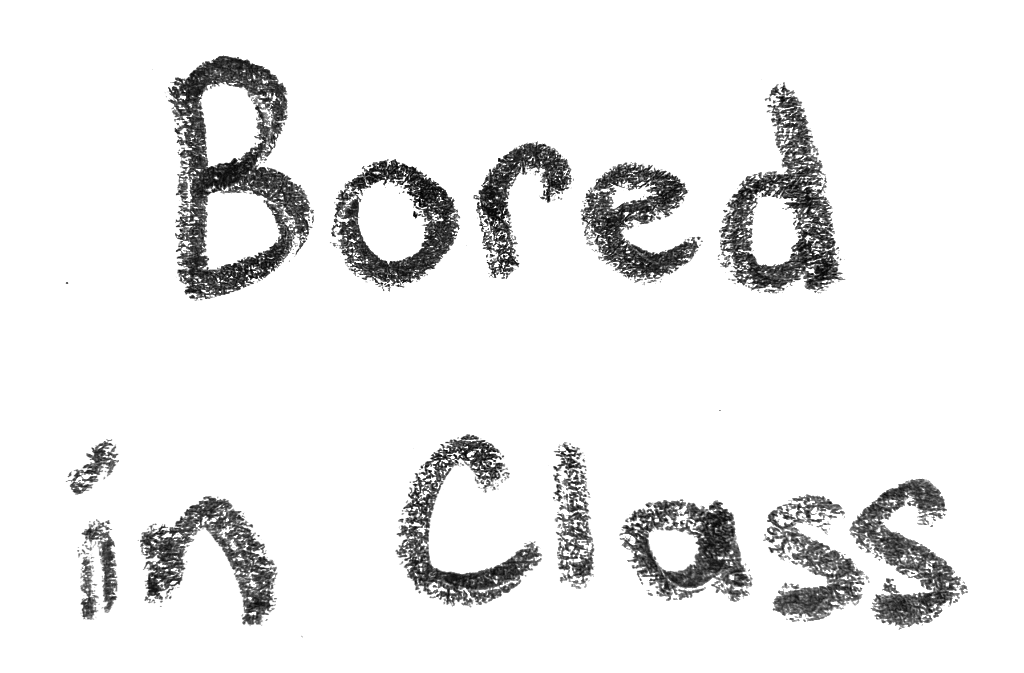 Bored
in Class